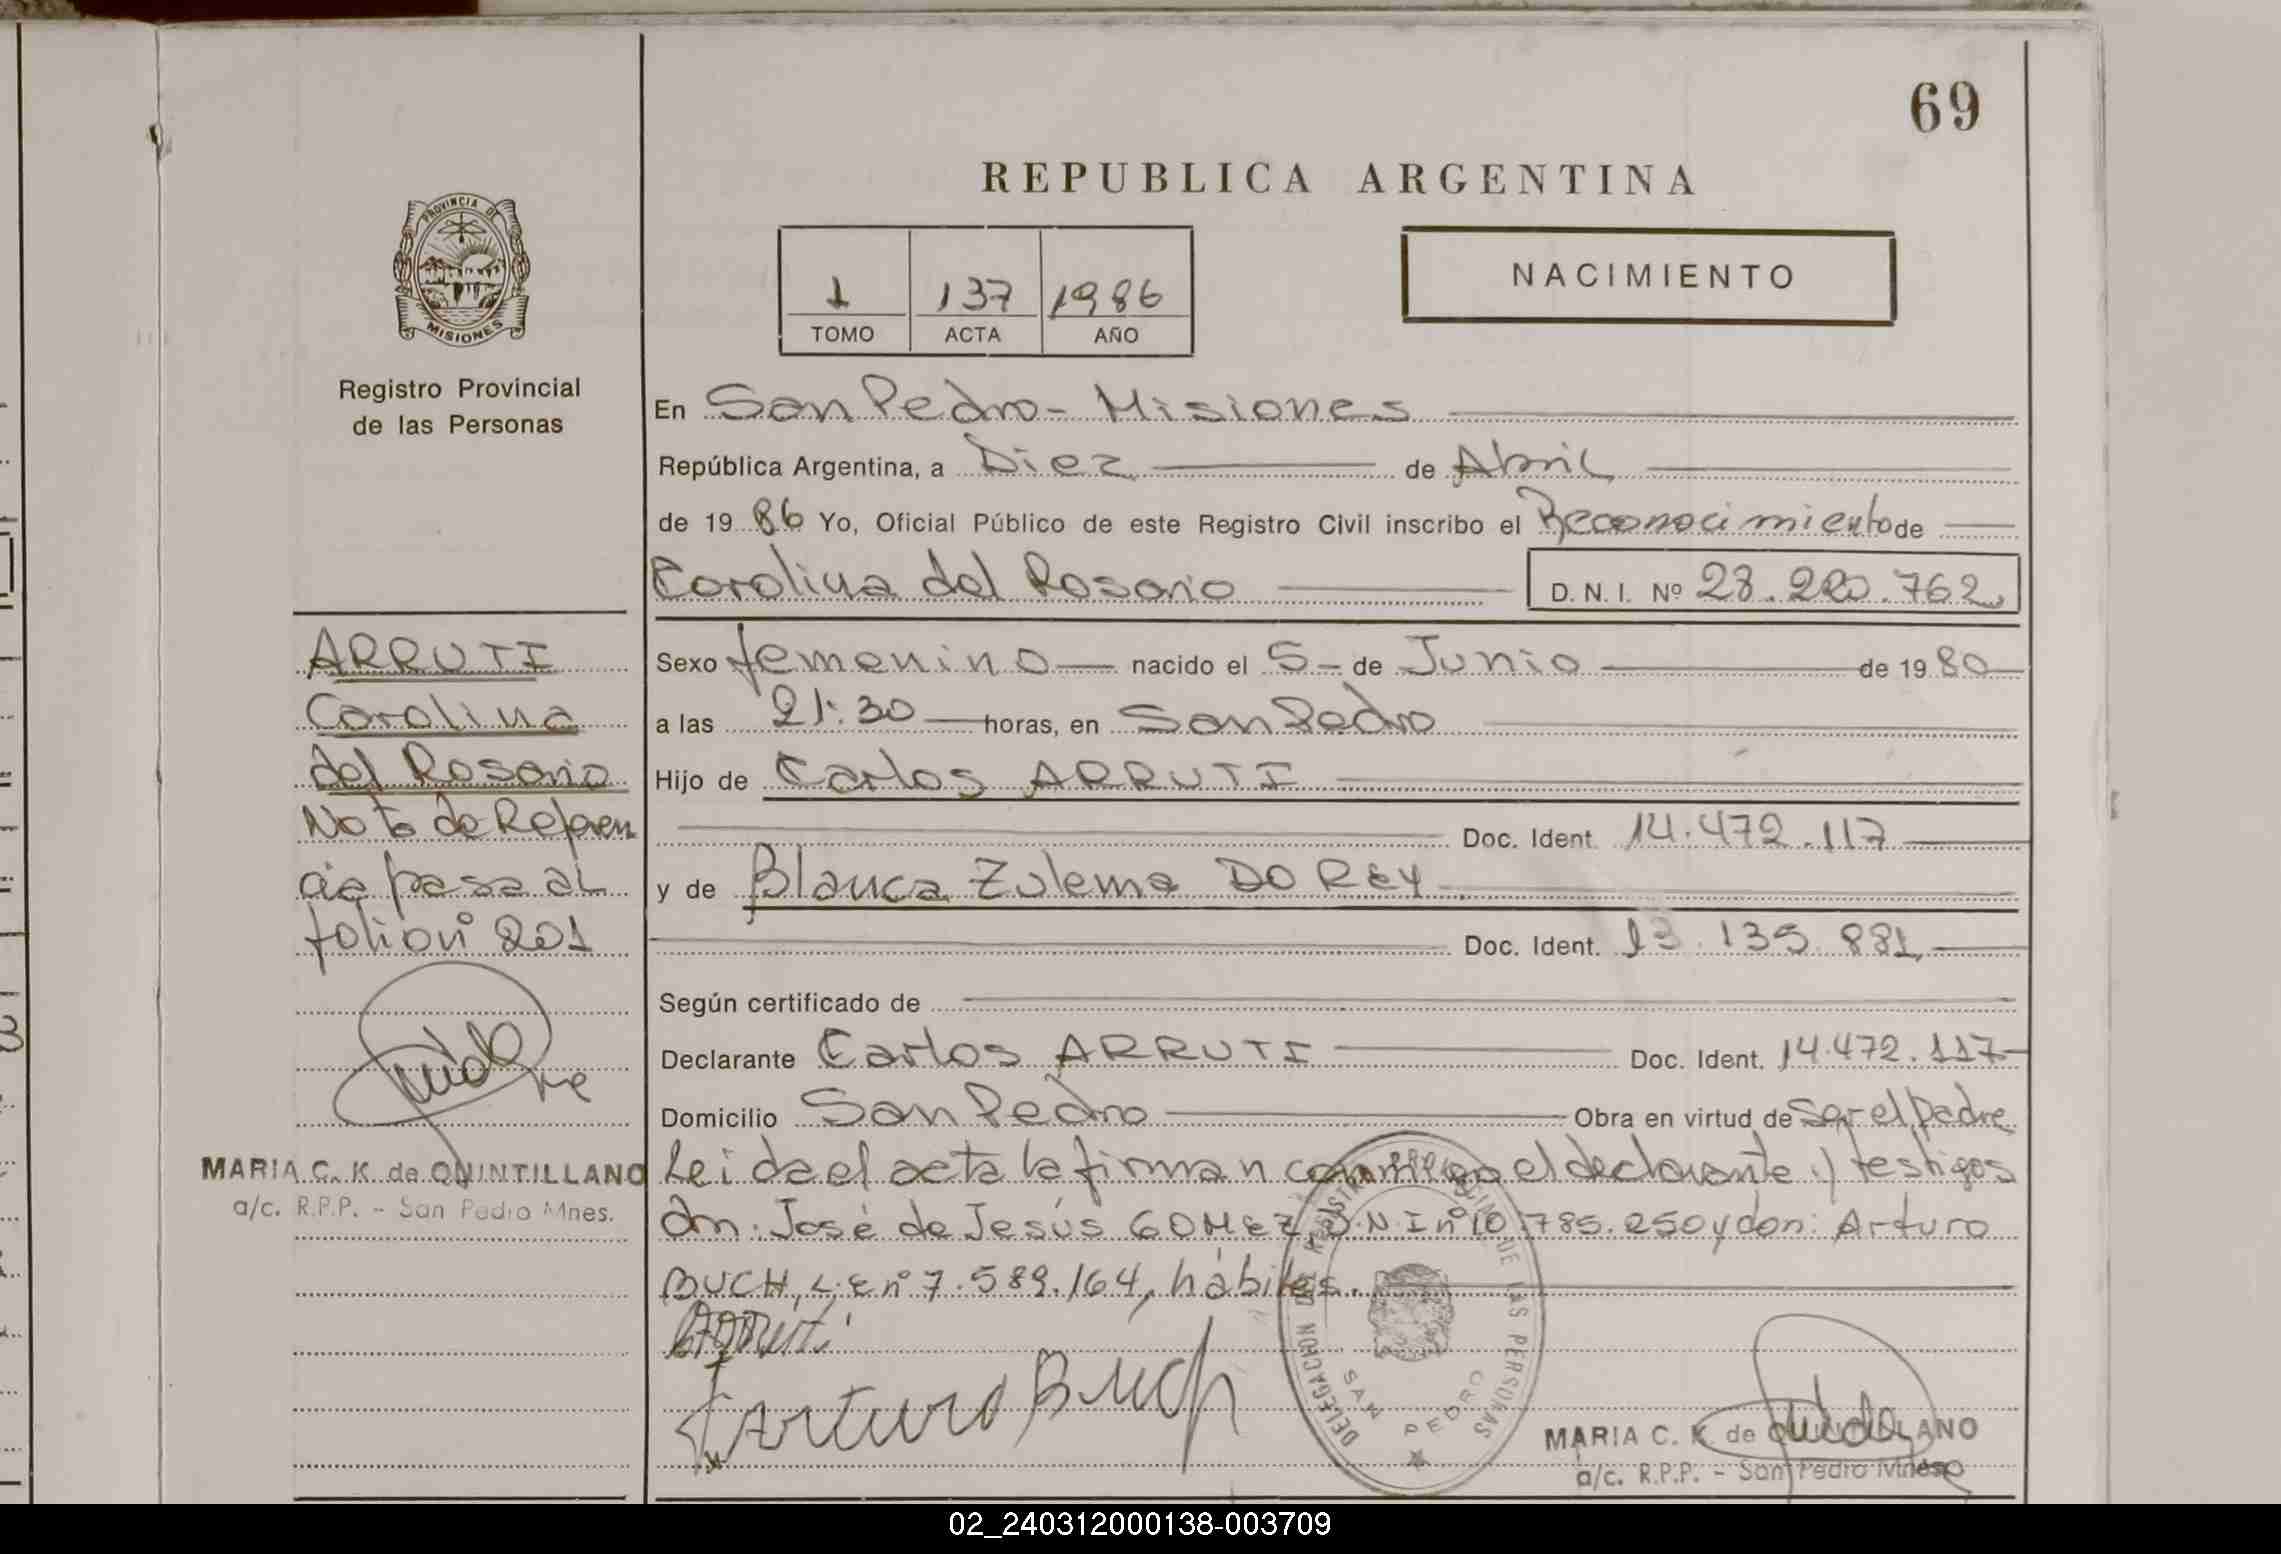 69
REPUBLICA ARGENTINA
PROVINCIA DE
MISIONES
Registro Provincial
de las Personas
1 137 1986
TOMO ACTA AÑO
NACIMIENTO
En San Pedro - Misiones
República Argentina, a Diez de Abril
de 19 86 Yo, Oficial Público de este Registro Civil inscribo el Reconocimiento de
Carolina del Rosario D. N. I. Nº 28.220.762
Sexo femenino nacido el 5 - de Junio de 19 80
a las 21:30 horas, en San Pedro
Hijo de Carlos ARRUTI
Doc. Ident. 14.472.117
y de Blanca Zulema DO REY
Doc. Ident. 13.135.881
Según certificado de
Declarante Carlos ARRUTI Doc. Ident. 14.472.117
Domicilio San Pedro Obra en virtud de Ser el padre
Leida el acta la firman conmigo el declarante y testigos
don: José de Jesús GOMEZ, D.N.I nº 10.785.250 y don: Arturo
BUCH, L.E nº 7.589.164, hábiles.
Arturo Buch
DELEGACION DEL REGISTRO PROVINCIAL DE LAS PERSONAS
SAN PEDRO
MARIA C. K. de QUINTILLANO
a/c. R.P.P. - San Pedro Mnes.
ARRUTI
Carolina
del Rosario
Nota de Referen
cia pasa al
folio nº 201
MARIA C. K. de QUINTILLANO
a/c. R.P.P. - San Pedro Mnes.
02_240312000138-003709